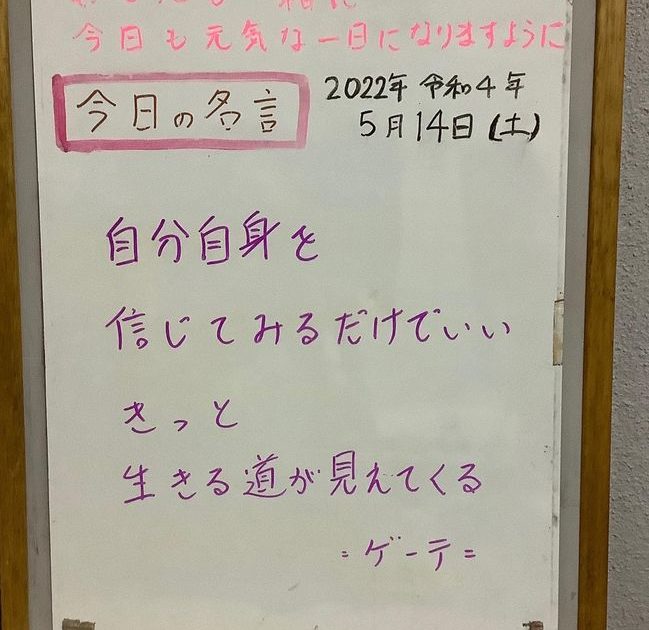 今日も元気な一日になりますように
今日の名言
2022年 令和4年
5月14日(土)
自分自身を
信じてみるだけでいい
きっと
生きる道が見えてくる
=ゲーテ=